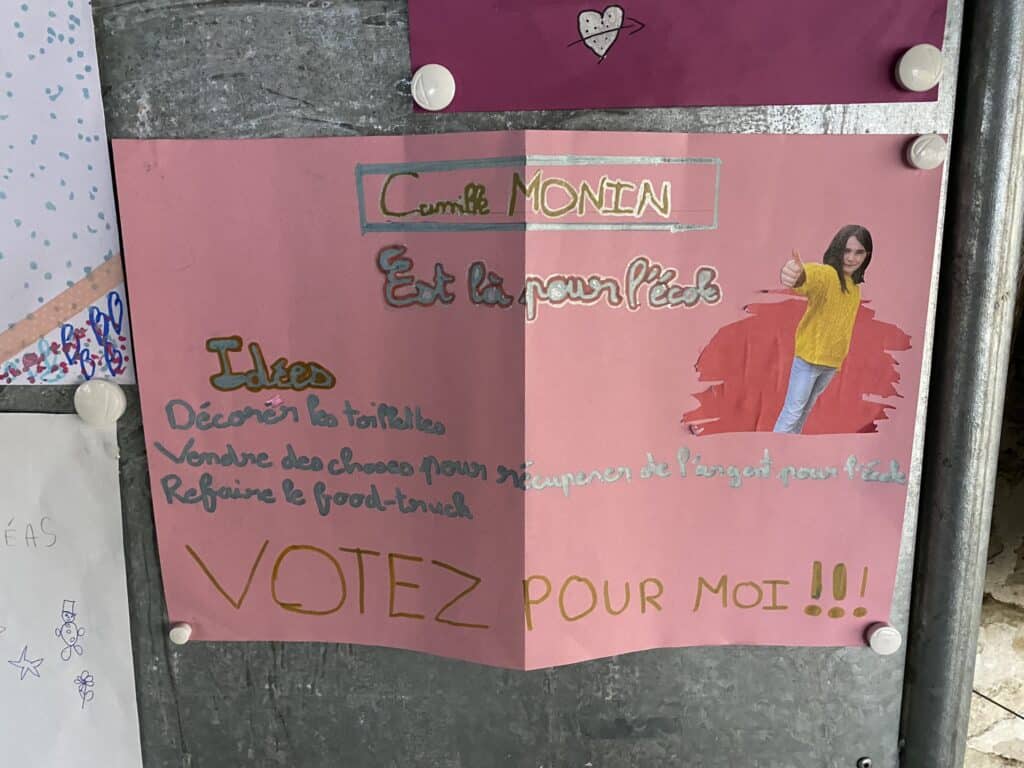 Camille MONIN
Est là pour l'école
Idées
Décorer les toillettes
Vendre des choses pour récuperer de l'argent pour l'École
Refaire le food-truck
VOTEZ POUR MOI !!!
ÉAS